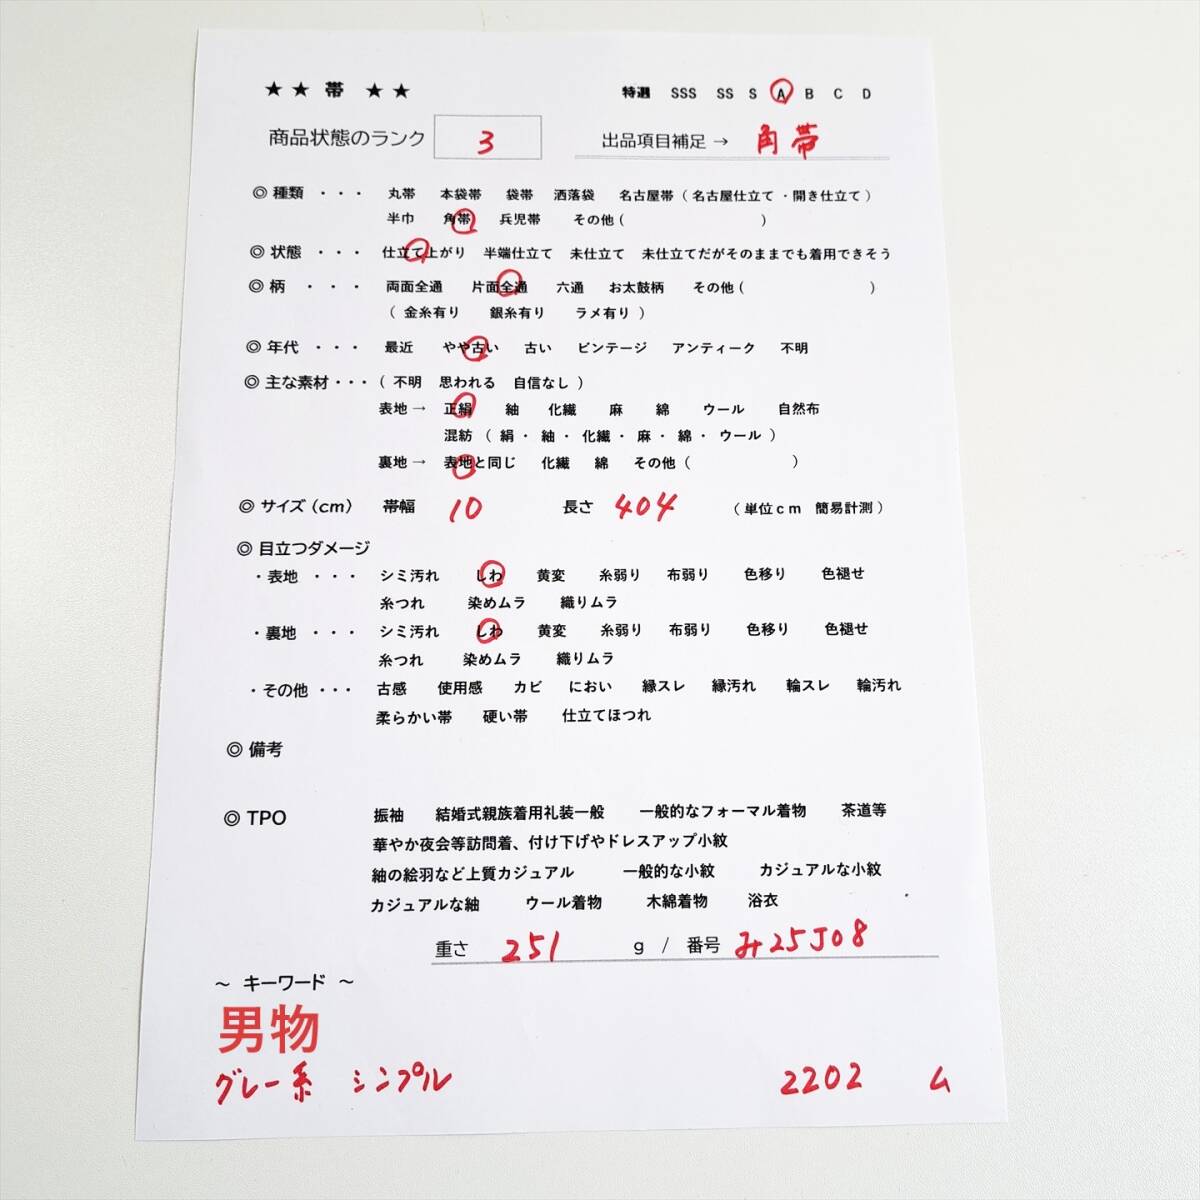 ★ ★ 帯 ★ ★ 特選 SSS SS S A B C D
商品状態のランク 3 出品項目補足 → 角帯
◎ 種類 ・・・ 丸帯 本袋帯 袋帯 洒落袋 名古屋帯 ( 名古屋仕立て ・ 開き仕立て )
半巾 角帯 兵児帯 その他 ( )
◎ 状態 ・・・ 仕立て上がり 半端仕立て 未仕立て 未仕立てだがそのままでも着用できそう
◎ 柄 ・・・ 両面全通 片面全通 六通 お太鼓柄 その他 ( )
( 金糸有り 銀糸有り ラメ有り )
◎ 年代 ・・・ 最近 やや古い 古い ビンテージ アンティーク 不明
◎ 主な素材 ・・・ ( 不明 思われる 自信なし )
表地 → 正絹 紬 化繊 麻 綿 ウール 自然布
混紡 ( 絹 ・ 紬 ・ 化繊 ・ 麻 ・ 綿 ・ ウール )
裏地 → 表地と同じ 化繊 綿 その他 ( )
◎ サイズ (cm) 帯幅 10 長さ 404 ( 単位cm 簡易計測 )
◎ 目立つダメージ
・表地 ・・・ シミ汚れ しわ 黄変 糸弱り 布弱り 色移り 色褪せ
糸つれ 染めムラ 織りムラ
・裏地 ・・・ シミ汚れ しわ 黄変 糸弱り 布弱り 色移り 色褪せ
糸つれ 染めムラ 織りムラ
・その他 ・・・ 古感 使用感 カビ におい 縁スレ 縁汚れ 輪スレ 輪汚れ
柔らかい帯 硬い帯 仕立てほつれ
◎ 備考
◎ TPO 振袖 結婚式親族着用礼装一般 一般的なフォーマル着物 茶道等
華やか夜会等訪問着、付け下げやドレスアップ小紋
紬の絵羽など上質カジュアル 一般的な小紋 カジュアルな小紋
カジュアルな紬 ウール着物 木綿着物 浴衣
重さ 251 g / 番号 み25J08
～ キーワード ～
男物
グレー系 シンプル 2202 ム